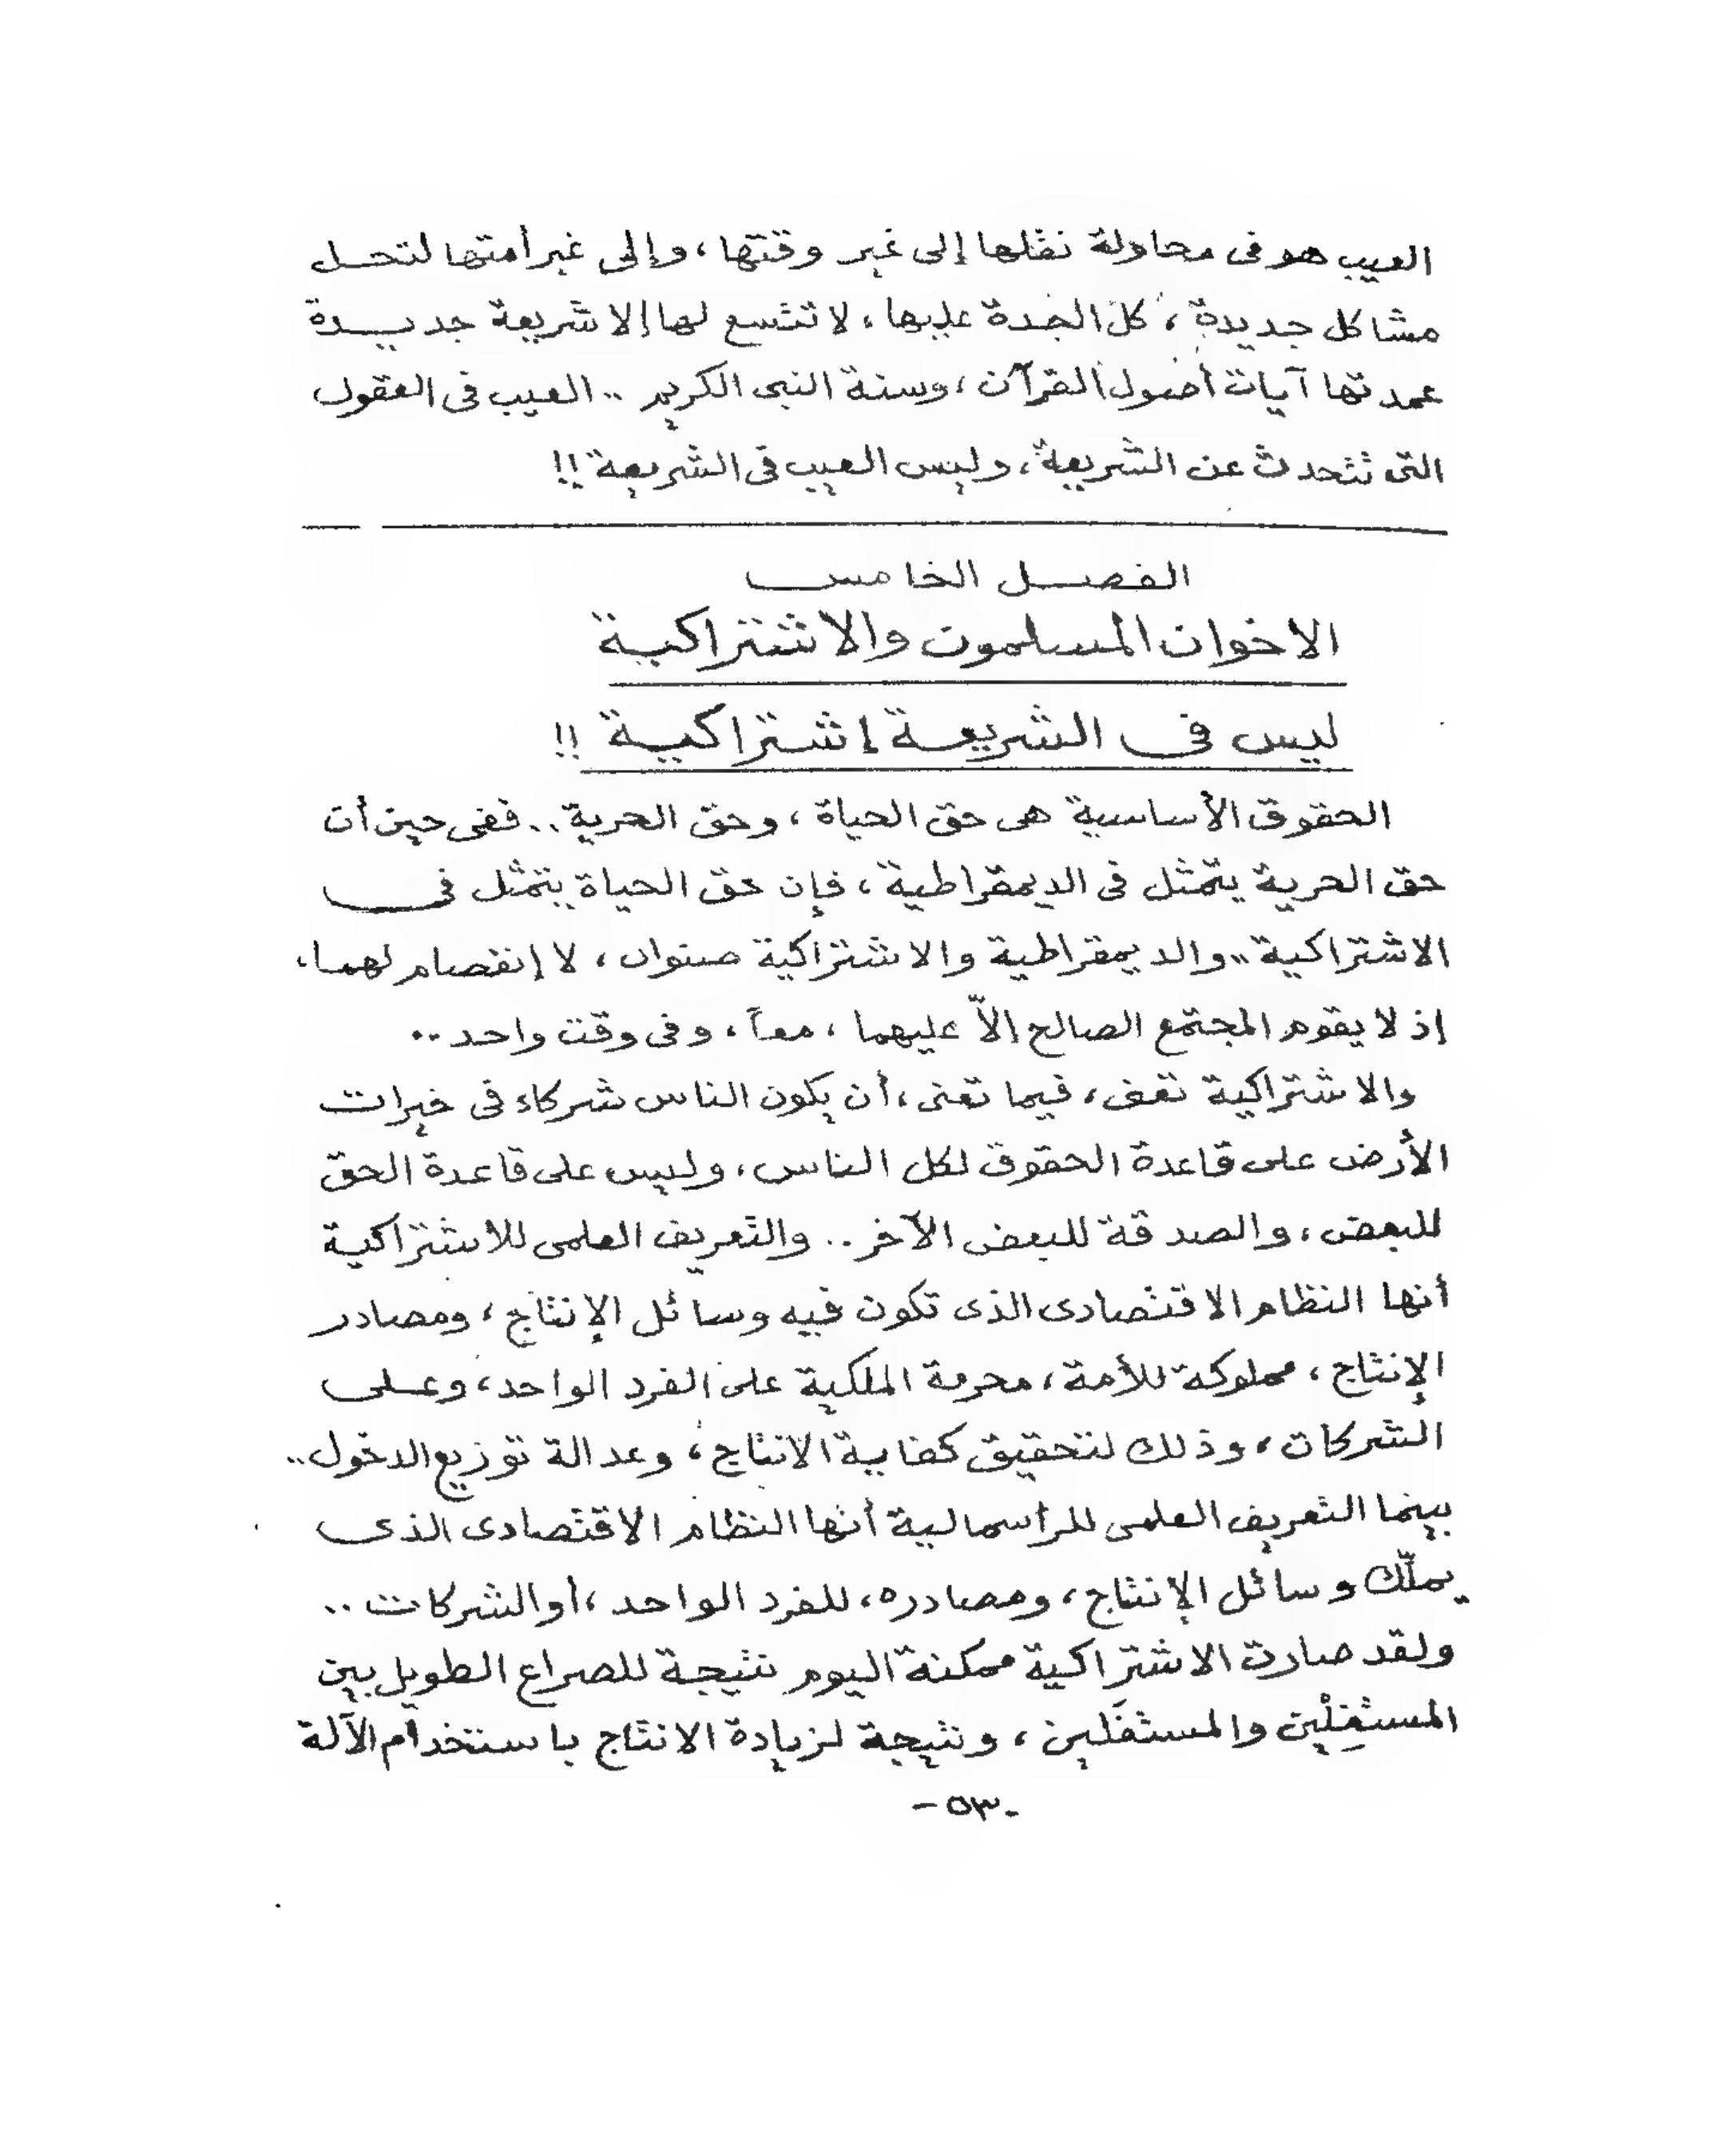 العيب هو فى محاولة نقلها إلى غير وقتها، وإلى غير أمتها لتحل
مشاكل جديدة، كل الجدة عليها، لا تتسع لها إلا شريعة جديدة
عمدتها آيات أصول القرآن، وسنة النبى الكريم .. العيب فى العقول
التى تتحدث عن الشريعة، وليس العيب فى الشريعة!!
الفصل الخامس
الاخوان المسلمون والاشتراكية
ليس فى الشريعة إشتراكية !!
الحقوق الأساسية هى حق الحياة، وحق الحرية.. ففى حين أن
حق الحرية يتمثل فى الديمقراطية، فإن حق الحياة يتمثل فى
الاشتراكية.. والديمقراطية والاشتراكية صنوان، لا إنفصام لهما،
إذ لا يقوم المجتمع الصالح إلاّ عليهما، معاً، وفى وقت واحد..
والاشتراكية تعنى، فيما تعنى، أن يكون الناس شركاء فى خيرات
الأرض على قاعدة الحقوق لكل الناس، وليس على قاعدة الحق
للبعض، والصدقة للبعض الآخر.. والتعريف العلمى للاشتراكية
أنها النظام الاقتصادى الذى تكون فيه وسائل الإنتاج، ومصادر
الإنتاج، مملوكة للأمة، محرمة الملكية على الفرد الواحد، وعلى
الشركات، وذلك لتحقيق كفاية الانتاج، وعدالة توزيع الدخول..
بينما التعريف العلمى للرأسمالية أنها النظام الاقتصادى الذى
يملّك وسائل الإنتاج، ومصادره، للفرد الواحد، أو الشركات..
ولقد صارت الاشتراكية ممكنة اليوم نتيجة للصراع الطويل بين
المستغِلْين والمستغَلين، ونتيجة لزيادة الانتاج باستخدام الآلة
- ٥٣ -